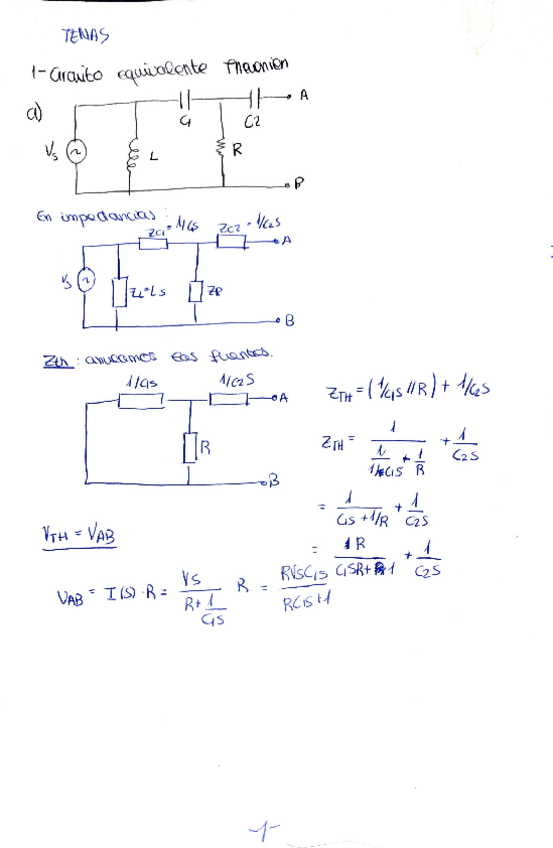 TEMAS
1- Circuito equivalente Thevenin
a)
C1 C2 A
Vs L R B
En impedancias:
Zc1 = 1/C1S Zc2 = 1/C2S A
Vs ZL=LS ZR B
Zth: anulamos las fuentes.
1/C1S 1/C2S A
R B
ZTH = (1/C1S // R) + 1/C2S
ZTH = 1 / (1/(1/C1S) + 1/R) + 1/C2S
= 1/(C1S + 1/R) + 1/C2S
= R/(C1SR+1) + 1/C2S
VTH = VAB
VAB = I(S)·R = VS/(R + 1/C1S) R = RVSC1S/(RC1S+1)
-1-